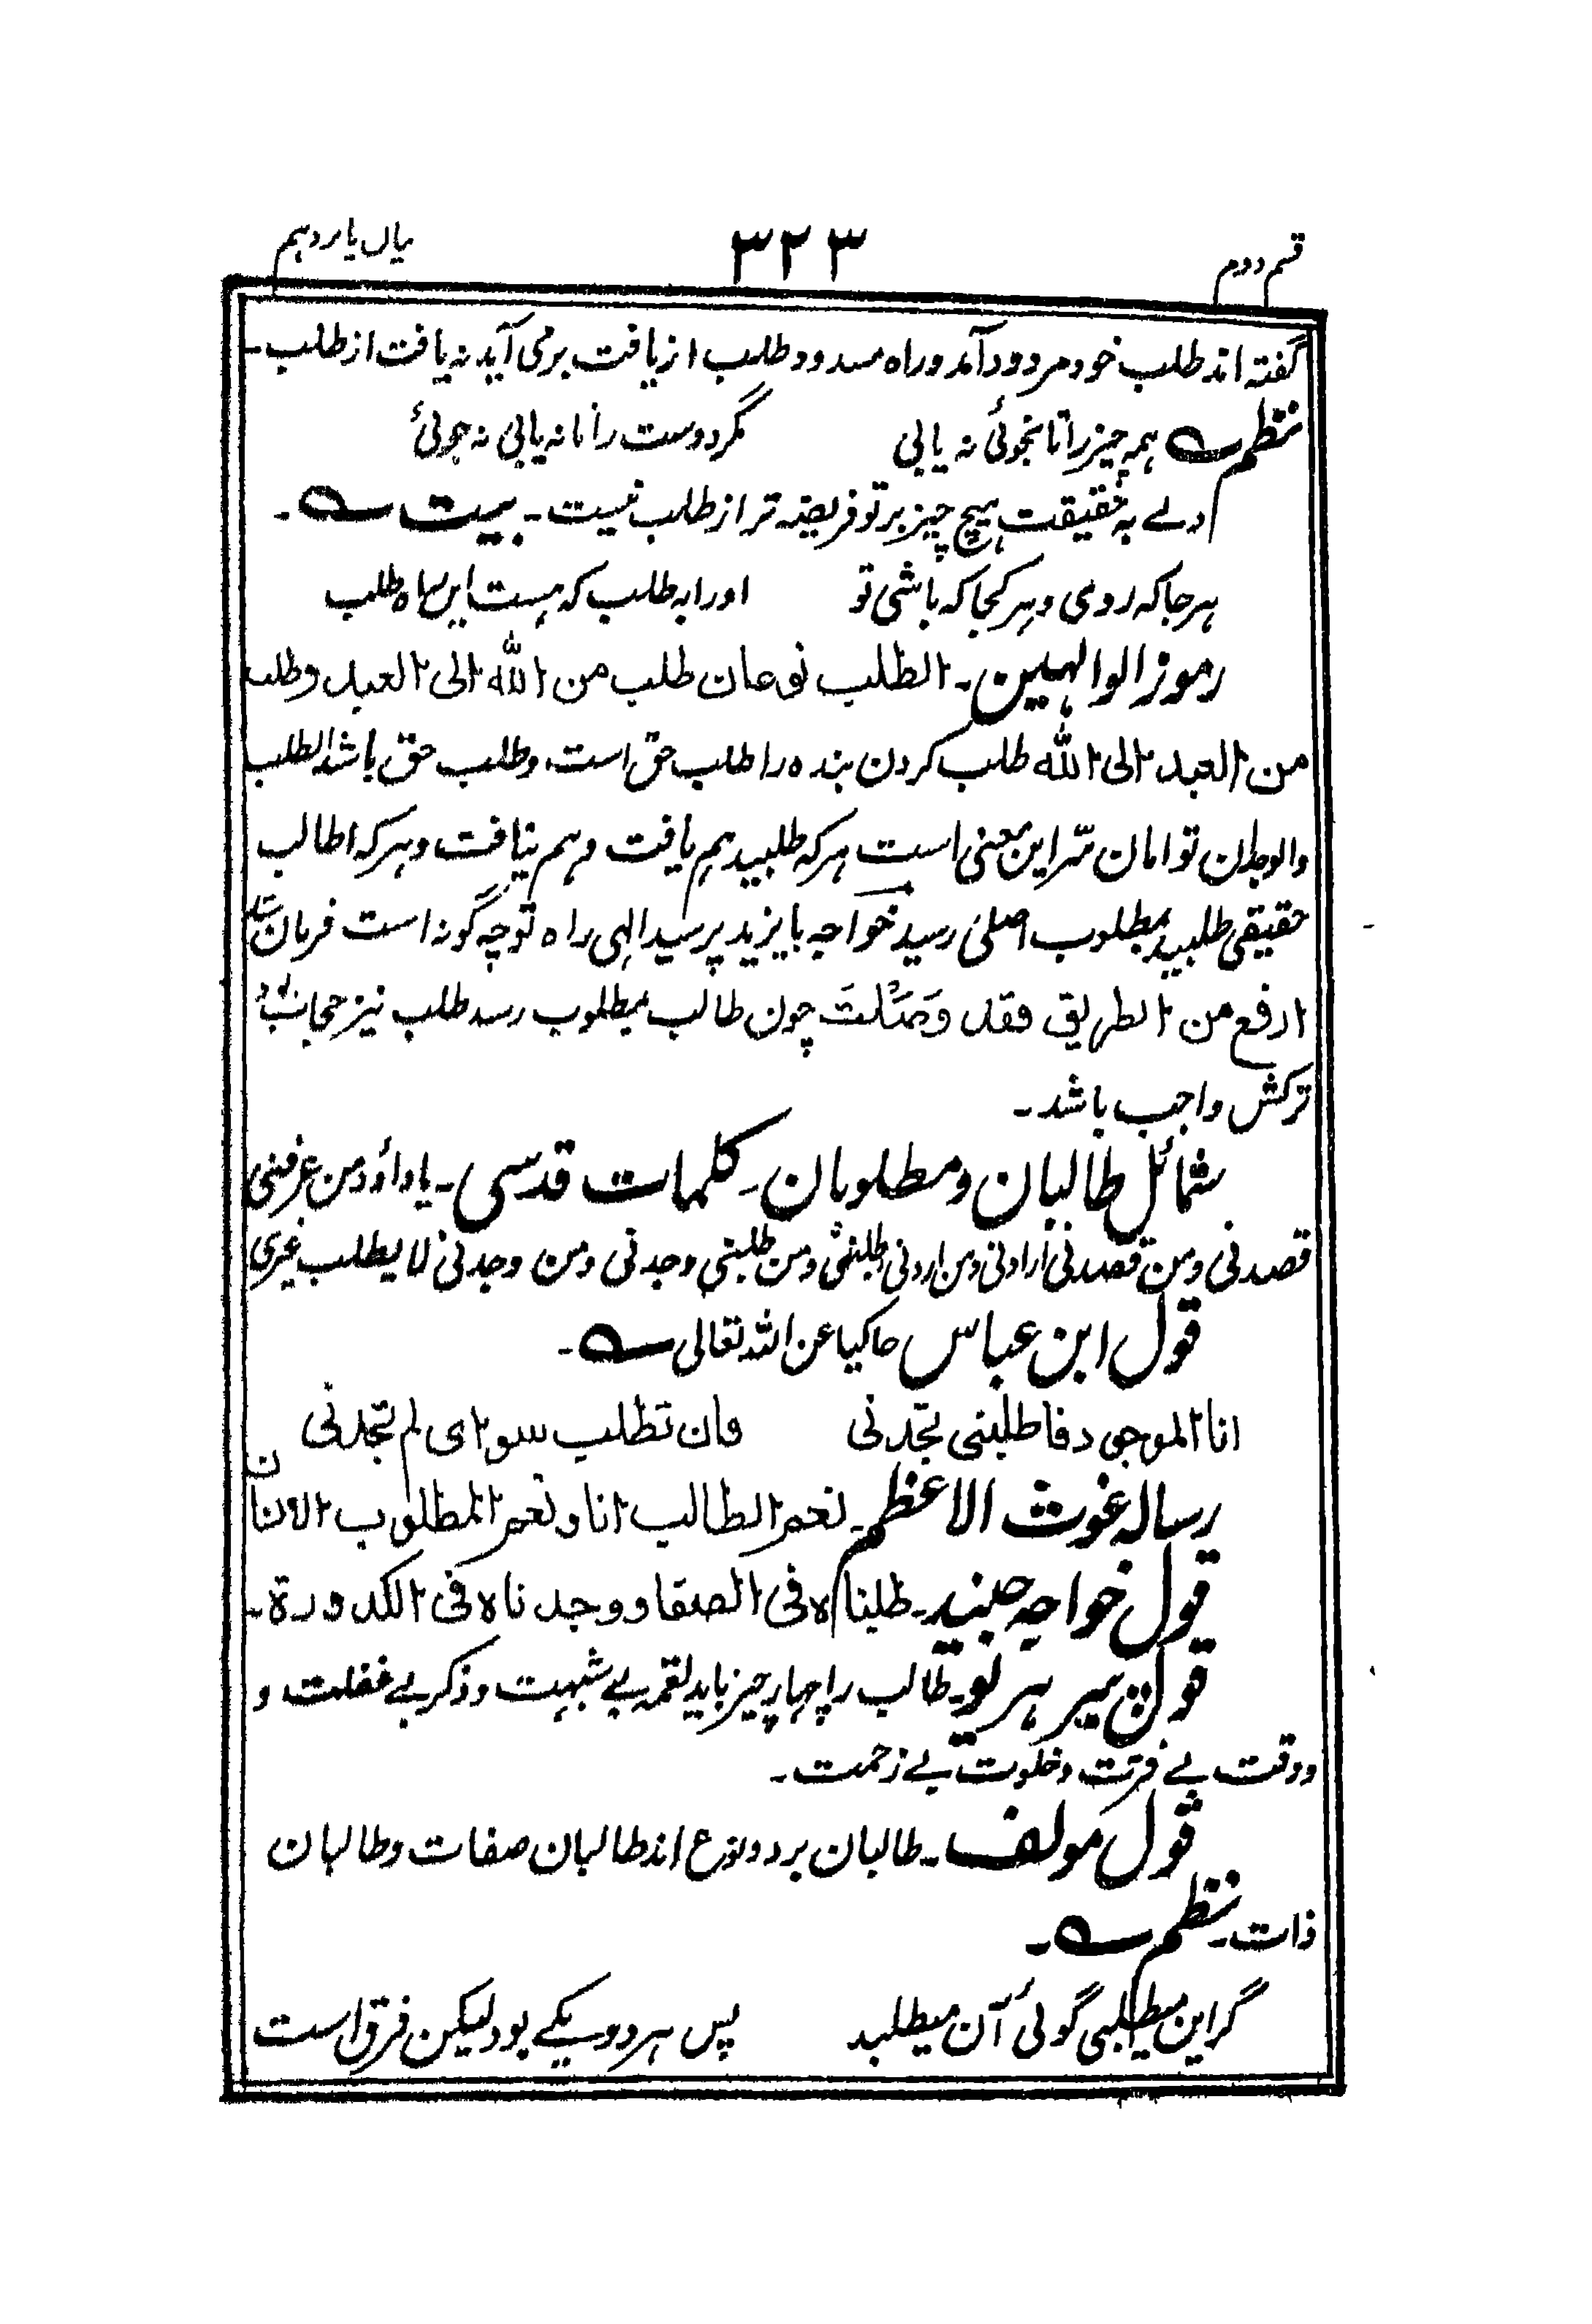 قسم دوم ۳۲۳ بیان یازدهم
گفته اند طلب خود مردود آمد و راه مسدود طلب از یافت برمی آید نه یافت از طلب۔
نظم ہمہ چیز را تا نجوئی نہ یابی مگر دوست را تا نہ یابی نہ جوئی
ولے بہ حقیقت ہیچ چیز بر تو فریضہ تر از طلب نیست۔ بیت۔
ہر جا کہ روی و ہر کجا کہ باشی تو اورا بہ طلب کہ ہست این راہ طلب
رموز الوالہین۔ الطلب نوعان طلب من الله الی العبد وطلب
من العبد الی الله طلب کردن بندہ را طلب حق است، و طلب حق باشد الطلب
والوجدان توامان سّر این معنی است ہر کہ طلبید ہم یافت و ہم نیافت و ہر کہ اطالب
حقیقی طلبید بمطلوب اصلی رسید خواجہ بایزید پرسید الٰہی راہ تو چہ گونہ است فرمان شد
ارفع من الطریق فقد وَصَلْتَ چون طالب بمطلوب رسد طلب نیز حجاب شود
ترکش واجب باشد۔
شمائل طالبان و مطلوبان۔ کلمات قدسی۔ یا داؤد من عرفنی
قصدنی ومن قصدنی ارادنی ومن اردنی طلبنی ومن طلبنی وجدنی ومن وجدنی لا یطلب غیری
قول ابن عباس حاکیا عن اللہ تعالی۔
انا الموجود فاطلبنی تجدنی وان تطلب سوای لم تجدنی
رسالہ غوث الاعظم۔ نعم الطالب انا ونعم المطلوب الانسان
قول خواجہ جنید۔ طلبناہ فی الصفا ووجدناہ فی الکدورة۔
قول پیر ہریو۔ طالب را چہار چیز باید لقمہ بے شبہت و ذکر بے غفلت و
و وقت بے فرقت و خلوت بے زحمت۔
قول مولف۔ طالبان بر دو نوع اند طالبان صفات و طالبان
ذات۔ نظم۔
گر این میطلبی گوئی آن میطلبد پس ہر دو یکے بود لیکن فرق است